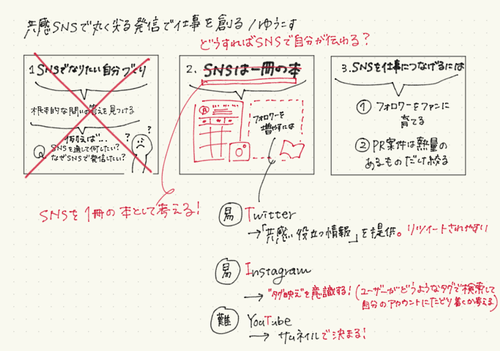 共感SNSで丸く尖る発信で仕事を創る/ゆうこす
どうすればSNSで自分が伝わる?
1.SNSでなりたい自分づくり
根本的な問いの答えを見つける
例えば…
Q SNSを通して何がしたい?
なぜSNSで発信したい?
? ?
2. SNSは一冊の本
フォロワーを
増やすには
3.SNSを仕事につなげるには
① フォロワーをファンに
育てる
② PR案件は熱量の
あるものだけ絞る
SNSを1冊の本として考える!
易 Twitter
→「共感、役立つ情報」を提供。リツイートされやすい
易 Instagram
→"タグ映え"を意識する!(ユーザーがどうようなタグで検索して
自分のアカウントにたどり着くか考える)
難 YouTube
→ サムネイルで決まる!